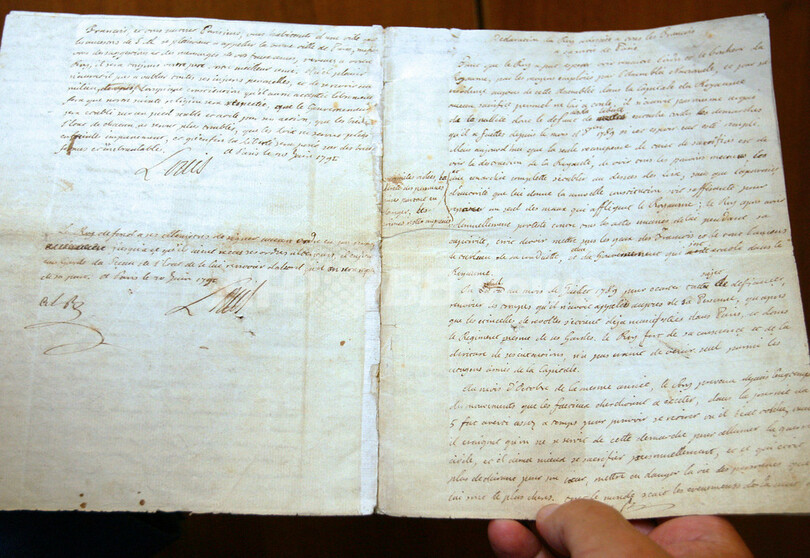 François, et vous surtout Parisiens, vous habitants d'une ville que
les ancêtres de S. M. se plaisoient à appeller la bonne ville de Paris, méfiez
vous des suggestions et des mensonges de vos faux amis, revenez à votre
Roy, il sera toujours votre père, votre meilleur ami. Quel plaisir
n'aura-t-il pas à oublier toutes ses injures personnelles, et de se revoir au
milieu de vous, lorsqu'une Constitution qu'il aura acceptée librement
fera que notre sainte religion sera respectée, que le Gouvernement
sera établi sur un pied stable et utile par son action, que les biens
et l'état de chacun ne seront plus troublés, que les loix ne seront plus
enfreintes impunément, et qu'enfin la liberté sera posée sur des bases
fermes et inébranlables. A Paris le 20 Juin 1791
Louis
Le Roy defend à ses Ministres de signer aucun ordre en son nom,
jusqu'à ce qu'ils aient reçu ses ordres ultérieurs, il enjoint
au Garde du Sceau de l'Etat de le lui renvoyer d'abord qu'il en sera requis
de sa part. A Paris le 20 Juin 1791
Louis
Déclaration du Roy adressée à tous les François
à sa sortie de Paris
Tant que le Roy a pu espérer voir renaître l'ordre et le bonheur du
Royaume, par les moyens employés par l'Assemblée Nationale, et par sa
résidence auprès de cette Assemblée dans la Capitale du Royaume
aucun sacrifice personnel ne lui a coûté, il n'auroit pas même argué
de la nullité dont le défaut de liberté entache toutes les démarches
qu'il a faittes depuis le mois d'8bre 1789 si cet espoir eut été rempli.
Mais aujourd'hui que la seule récompense de tant de sacrifices est de
voir la destruction de la Royauté, de voir tous les pouvoirs méconnus, les
propriétés violées, la
sûreté des personnes
mise partout en
danger, les
crimes rester impunis
une anarchie complette s'établir au dessus des loix, sans que l'apparence
d'autorité que lui donne la nouvelle constitution soit suffisante pour
réparer un seul des maux qui affligent le Royaume; le Roy après avoir
solennellement protesté contre tous les actes émanés de lui pendant sa
captivité, croit devoir mettre sous les yeux des François et de tout l'univers
le tableau de sa conduite, et du Gouvernement qui s'est établi dans le
Royaume.
du mois de Juillet 1789 pour écarter tout sujet de défiance,
renvoyer les troupes qu'il n'avoit appellées auprès de sa Personne, qu'après
que les étincelles de révolte s'étoient déja manifestées dans Paris, et dans
le Régiment même de ses Gardes. Le Roy fort de sa conscience et de la
droiture de ses intentions, n'a pas craint de venir seul parmi les
citoyens armés de la Capitale.
Au mois d'Octobre de la même année, le Roy prévenu depuis longtemps
des mouvements que les factieux cherchoient à exciter, dans la journée du
5 fut averti assez à temps pour pouvoir se retirer où il eut voulu, mais
il craignit qu'on ne se servit de cette démarche pour allumer la guerre
civile, et il aima mieux se sacrifier personnellement, et ce qui étoit
plus déchirant pour son cœur, mettre en danger la vie des personnes qui
lui sont le plus chères.